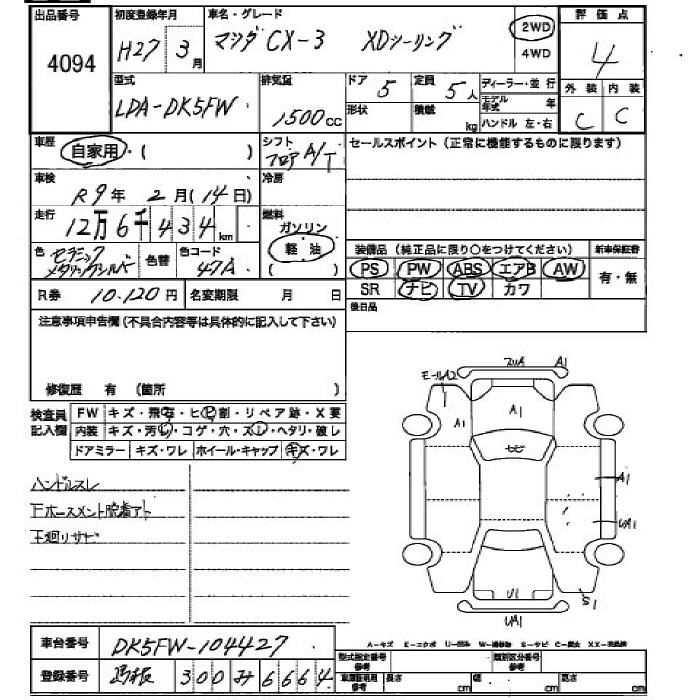 出品番号 初度登録年月 車名・グレード 評価点
4094 H27 3月 マツダ CX-3 XDツーリング 2WD 4WD 4
型式 排気量 ドア 5 定員 5人 ディーラー・並行 外装 内装
LDA-DK5FW 1500cc 形状 積載 kg モデル年式 年 ハンドル 左・右 C C
車歴 自家用・( ) シフト フロア A/T セールスポイント(正常に機能するものに限ります)
車検 R9年 2月(14日) 冷房
走行 12万6千434km 燃料 ガソリン
軽油 ( )
色 セラミックメタリックシルバー 色替 色コード 47A
装備品(純正品に限り○をつけてください) 新車保証書
PS PW ABS エアB AW 有・無
SR ナビ TV カワ
R券 10,120円 名変期限 月 日 後日品
注意事項申告欄(不具合内容等は具体的に記入して下さい)
修復歴 有 (箇所 )
検査員記入欄 FW キズ・飛石・ヒビ割・リペア跡・X要
内装 キズ・汚れ・コゲ・穴・スレ・ヘタリ・破れ
ドアミラー キズ・ワレ ホイール・キャップ キズ・ワレ
ハンドルスレ
下廻リサビ
モールA2 A1
A1 A1
A1
UA1
U1 S1
UA1
A-キズ E-エクボ U-凹み W-補修跡 S-サビ C-腐食 XX-交換済
車台番号 DK5FW-104427
登録番号 島根 300 み 6664
型式指定番号 参考 類別区分番号 参考
長さ cm 幅 cm 高さ cm